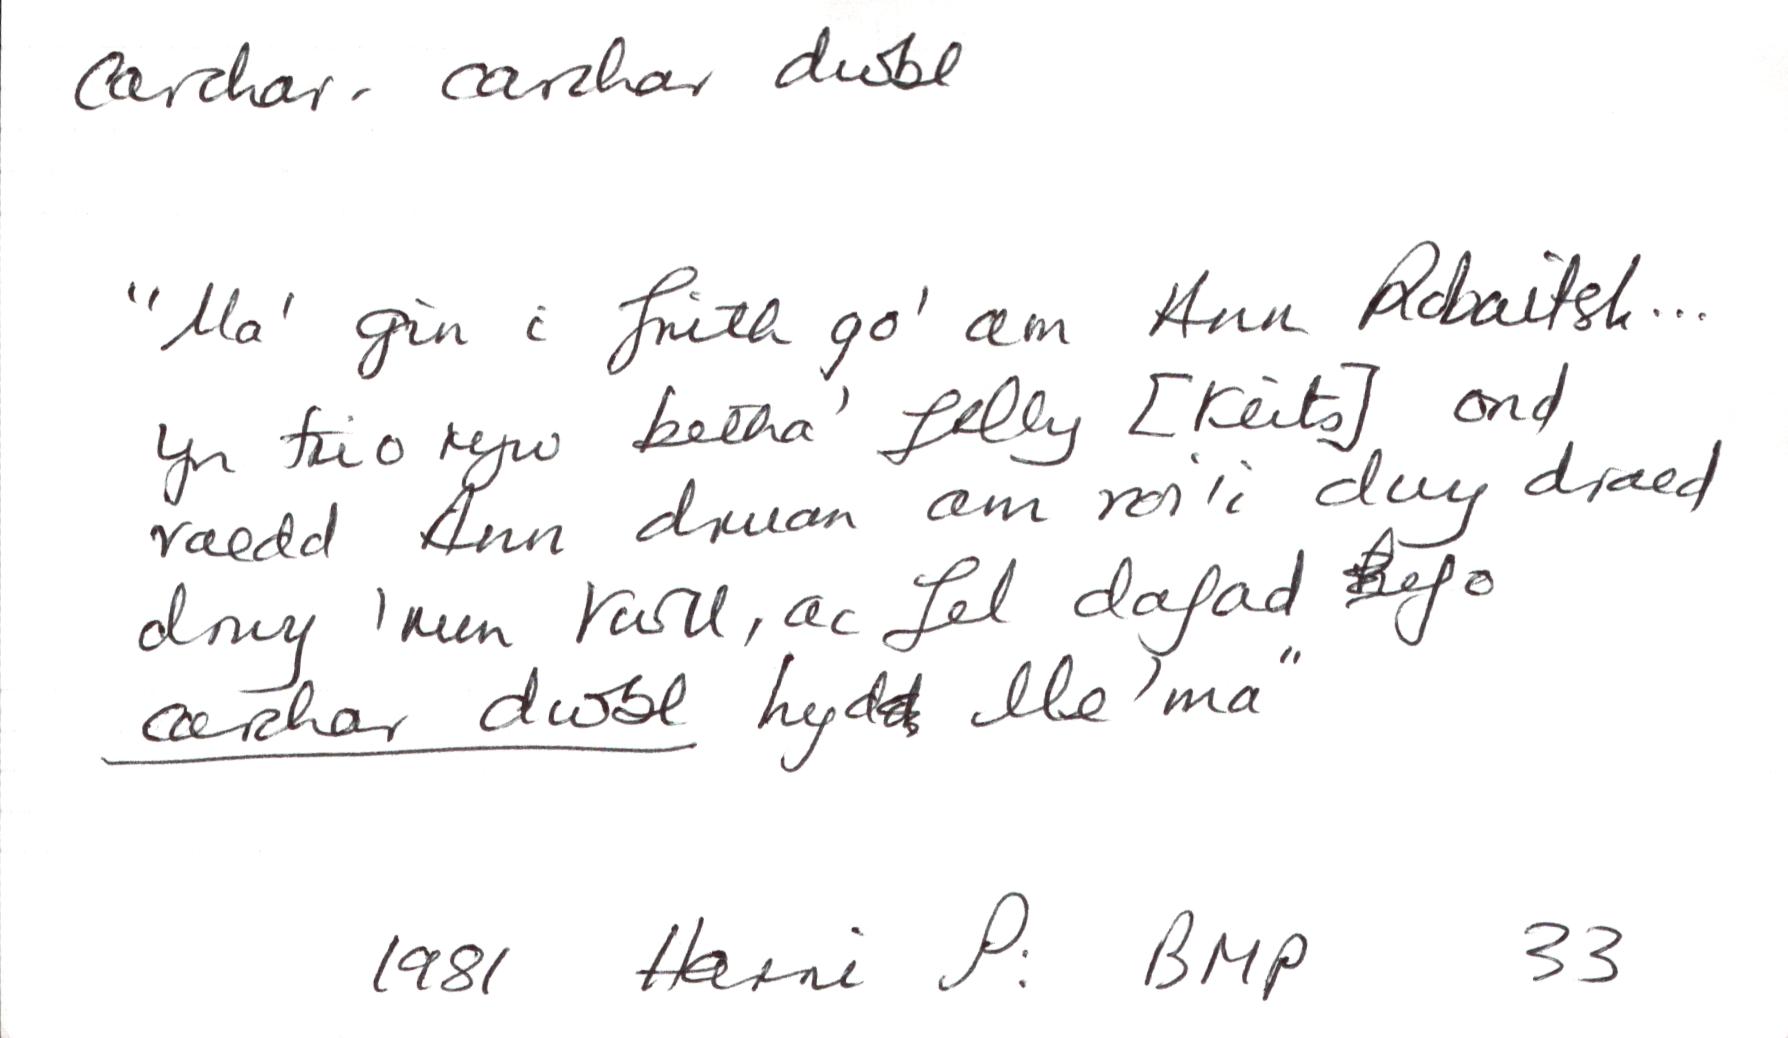 carchar. carchar dwbl
"Ma' gin i frith go' am Ann Robaitsh...
yn trio ryw betha' felly [Keits] ond
raedd Ann druan am roi'i duy draed
drwy 'run twll, ac fel dafad hefo
carchar dwbl hydd lle 'ma"
1981 Harri P: BMP 33